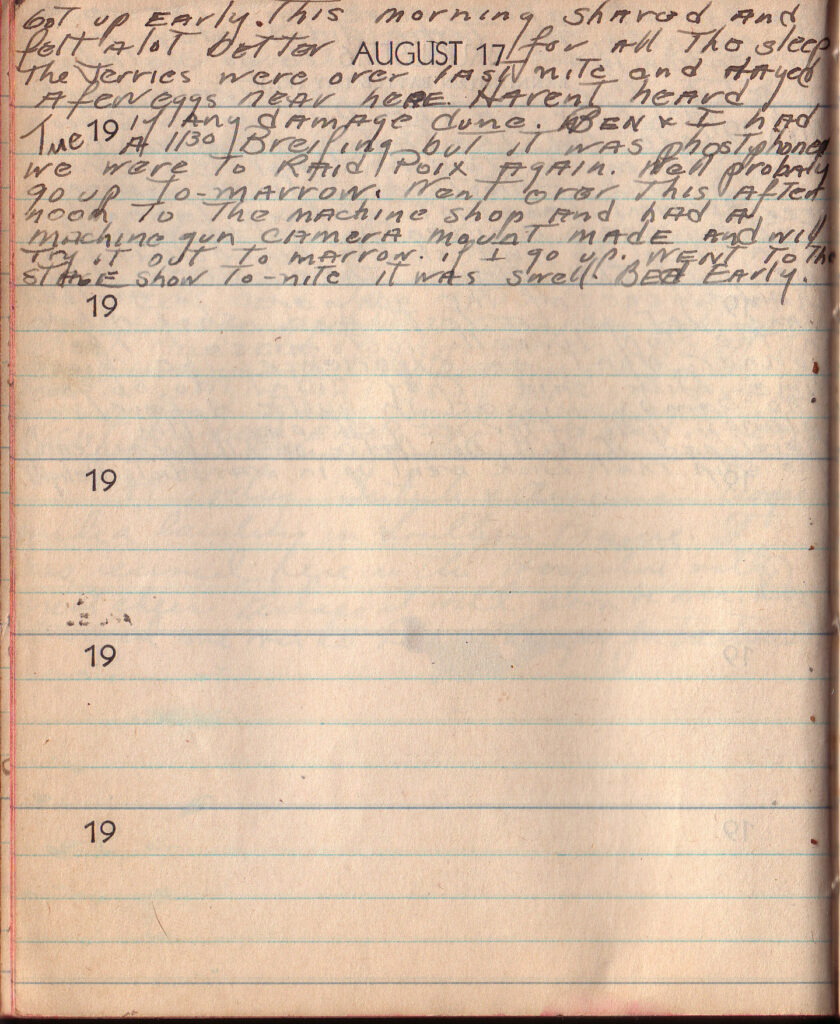 Got up Early. This morning shaved and
felt A lot better for all The sleep
AUGUST 17
The Jerries were over last nite and Layed
A few eggs near here. Havent heard
Tue 19 if Any damage done. BEN & I had
A 1130 Breifing but it was phostphoned
we were To RAid Poix Again. Well probaly
go up To-marrow. Went over This After
noon To The machine shop And had A
machine gun camera mount made and will
Try it out To marrow. if I go up. WENT To The
STAGE show To-nite it was swell. BED Early.
19
19
19
19